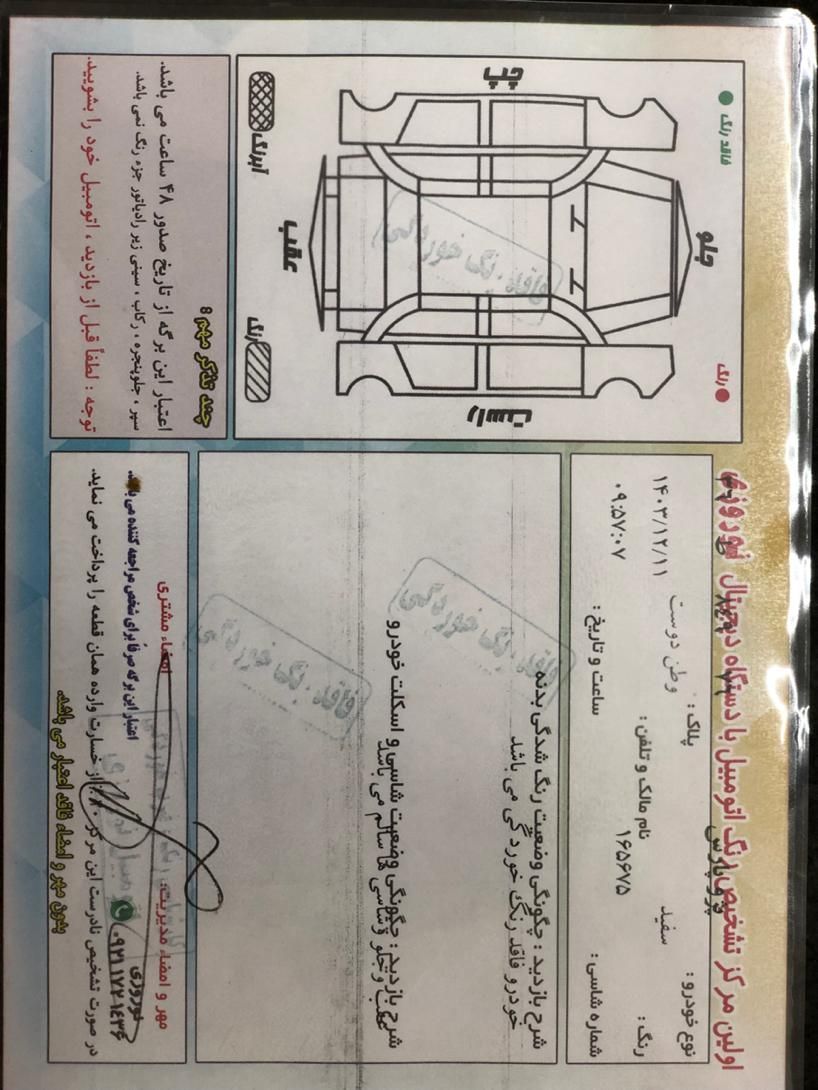 اولین مرکز تشخیص رنگ اتومبیل با دستگاه دیجیتال نوروزی
نوع خودرو: پژو پارس
پلاک:
رنگ: سفید
نام مالک و تلفن: وطن دوست
شماره شاسی: ۱۶۵۶۷۵
ساعت و تاریخ: ۱۴۰۳/۱۲/۱۱
۰۹:۵۷:۰۷
شرح بازدید: چگونگی وضعیت رنگ شدگی بدنه
خودرو فاقد رنگ خوردگی می باشد
فاقد رنگ خوردگی
شرح بازدید: چگونگی وضعیت شاسی و اسکلت خودرو
عقب و جلو شاسی ها سالم می باشد
فاقد رنگ خوردگی
مهر و امضاء مدیریت:
امضاء مشتری
نوروزی
۰۹۲۱۱۷۲۱۴۳۶
اعتبار این برگه صرفاً برای شخص مراجعه کننده می باشد.
در صورت تشخیص نادرست این مرکز ٪۸۰ از خسارت وارده همان قطعه را پرداخت می نماید.
بدون مهر و امضاء فاقد اعتبار می باشد.
فاقد رنگ
رنگ
جلو
چپ
راست
عقب
فاقد رنگ خوردگی
آبرنگ
رنگ
چند تذکر مهم:
اعتبار این برگه از تاریخ صدور ۴۸ ساعت می باشد.
سپر، جلوپنجره، رکاب، سینی زیر رادیاتور جزء رنگ نمی باشد.
توجه: لطفاً قبل از بازدید، اتومبیل خود را بشویید.